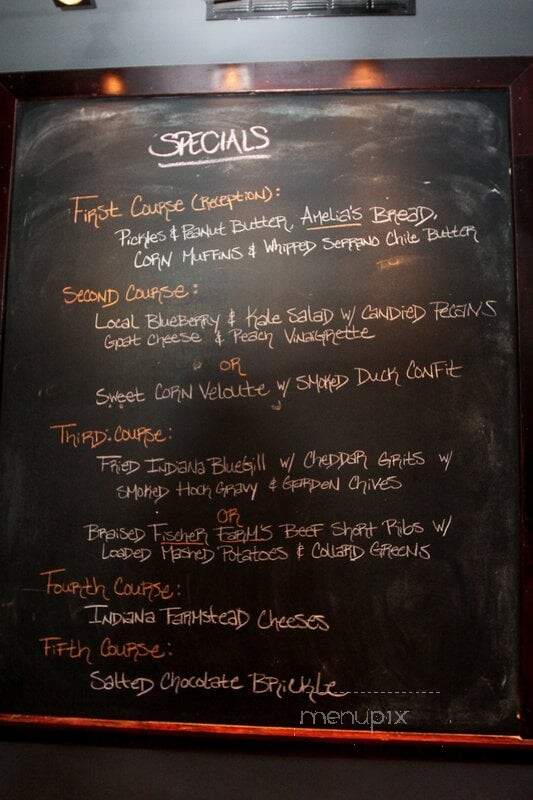 SPECIALS
First Course (Reception):
Pickles & Peanut Butter, Amelia's Bread,
Corn Muffins & Whipped Serrano Chile Butter
Second Course:
Local Blueberry & Kale Salad w/ Candied Pecans
Goat Cheese & Peach Vinaigrette
OR
Sweet Corn Veloute w/ Smoked Duck Confit
Third Course:
Fried Indiana Bluegill w/ Cheddar Grits w/
Smoked Hock Gravy & Garden Chives
OR
Braised Fischer Farm's Beef Short Ribs w/
Loaded Mashed Potatoes & Collard Greens
Fourth Course:
Indiana Farmstead Cheeses
Fifth Course:
Salted Chocolate Brickle
menupix